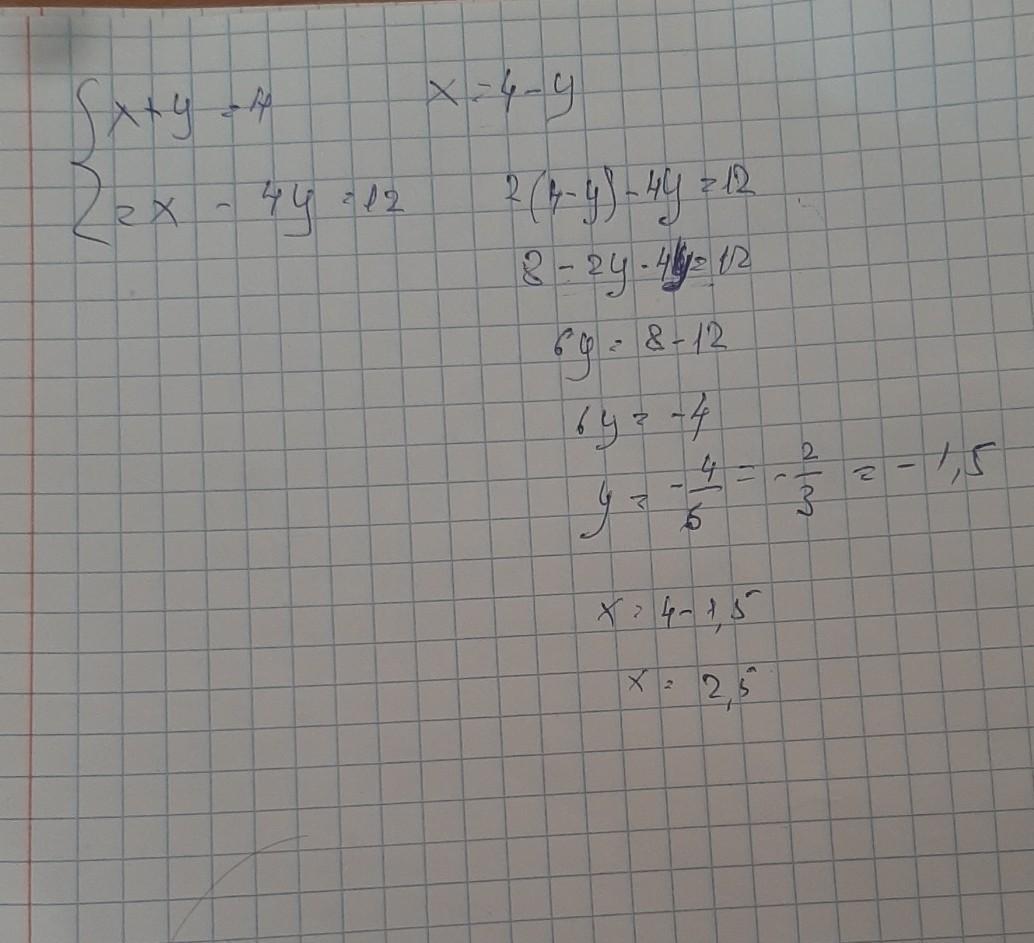 x + y = 4
x = 4 - y
2x - 4y = 12
2(4-y) - 4y = 12
8 - 2y - 4y = 12
6y = 8 - 12
6y = -4
y = -4/6 = -2/3 = -1,5
x = 4 - 1,5
x = 2,5